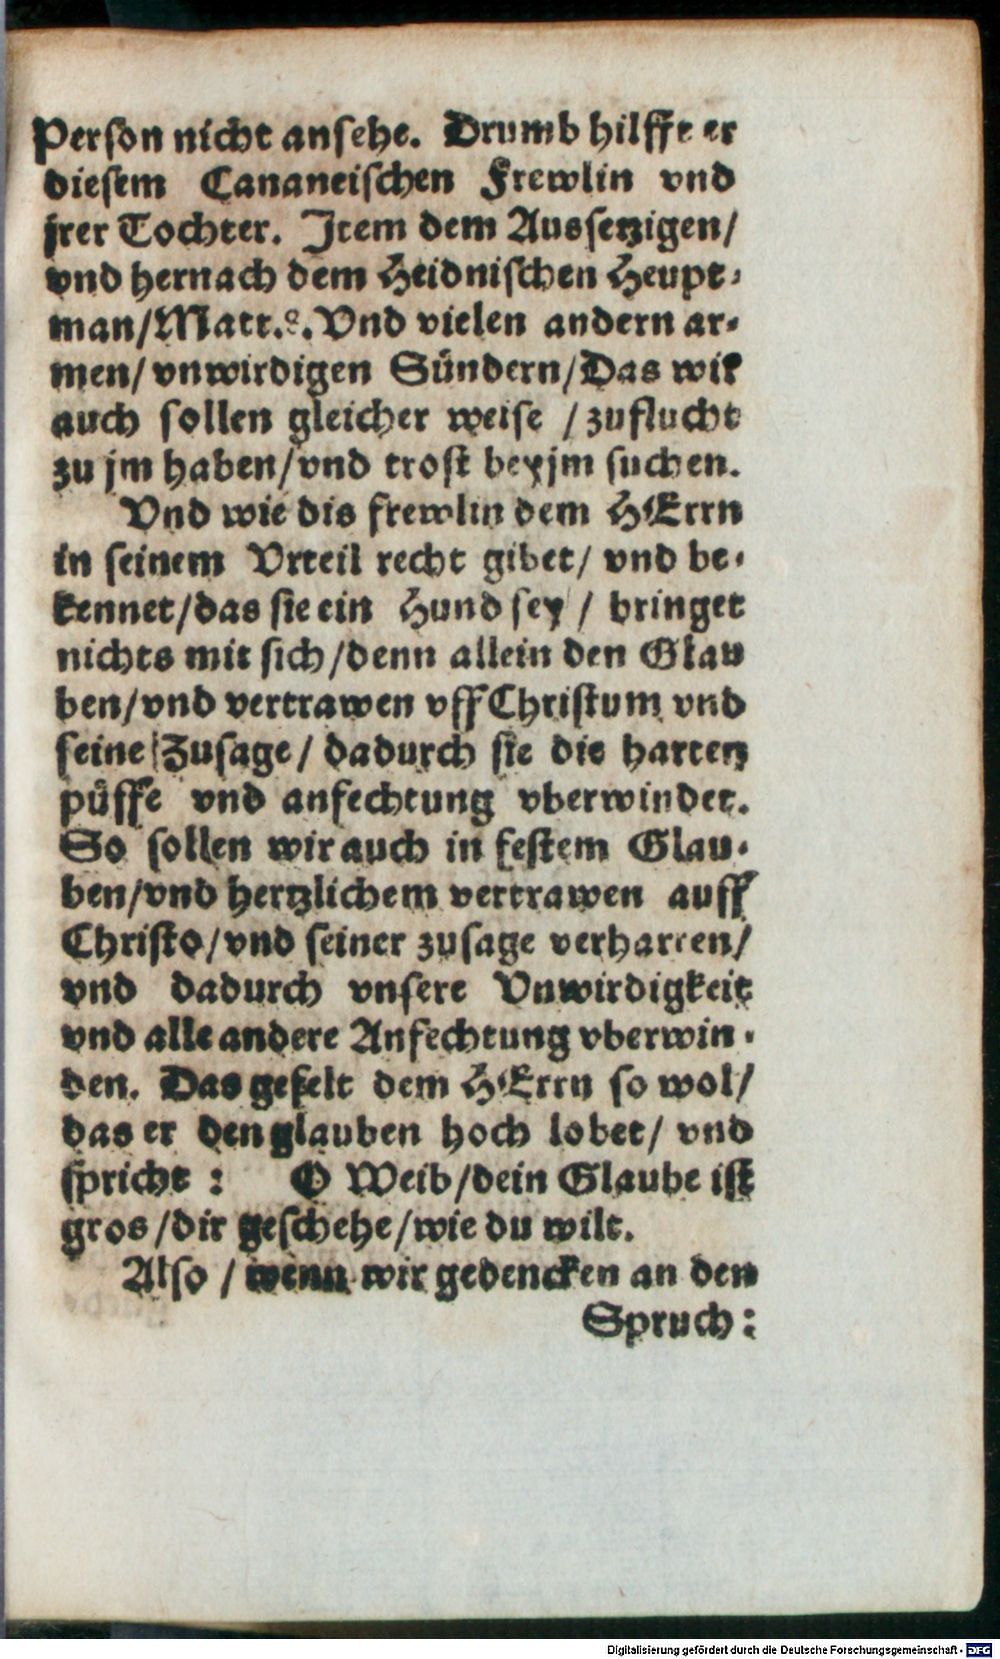 Person nicht ansehe. Drumb hilfft er
diesem Cananeischen Frewlin vnd
jrer Tochter. Item dem Aussetzigen/
vnd hernach dem Heidnischen Heupt-
man/Matt.8. Vnd vielen andern ar-
men/vnwirdigen Sündern/Das wir
auch sollen gleicher weise / zuflucht
zu jm haben/vnd trost bey jm suchen.
Vnd wie dis frewlin dem HErrn
in seinem Vrteil recht gibet/ vnd be-
kennet/das sie ein Hund sey / bringet
nichts mit sich/denn allein den Glau
ben/vnd vertrawen vff Christum vnd
seine Zusage/ dadurch sie die harten
püffe vnd anfechtung vberwindet.
So sollen wir auch in festem Glau-
ben/vnd hertzlichem vertrawen auff
Christo/vnd seiner zusage verharren/
vnd dadurch vnsere Vnwirdigkeit
vnd alle andere Anfechtung vberwin-
den. Das gefelt dem HErrn so wol/
das er den glauben hoch lobet/ vnd
spricht : O Weib/dein Glaube ist
gros/dir geschehe/wie du wilt.
Also / wenn wir gedencken an den
Spruch:
Digitalisierung gefördert durch die Deutsche Forschungsgemeinschaft - DFG